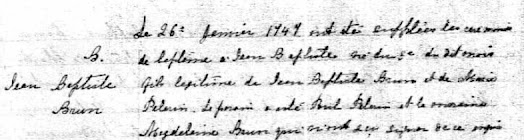 Le 26e Janvier 1747 ont été supplées les ceremonies
B.
de baptême a Jean Baptiste né du 5e du dit mois
Jean Baptiste
fils legitime de Jean Baptiste Brun et de Marie
Brun
Blouin. Le parain a eté Paul Blouin et la maraine
Magdelaine Brun qui n'ont sçu signer de ce enquis